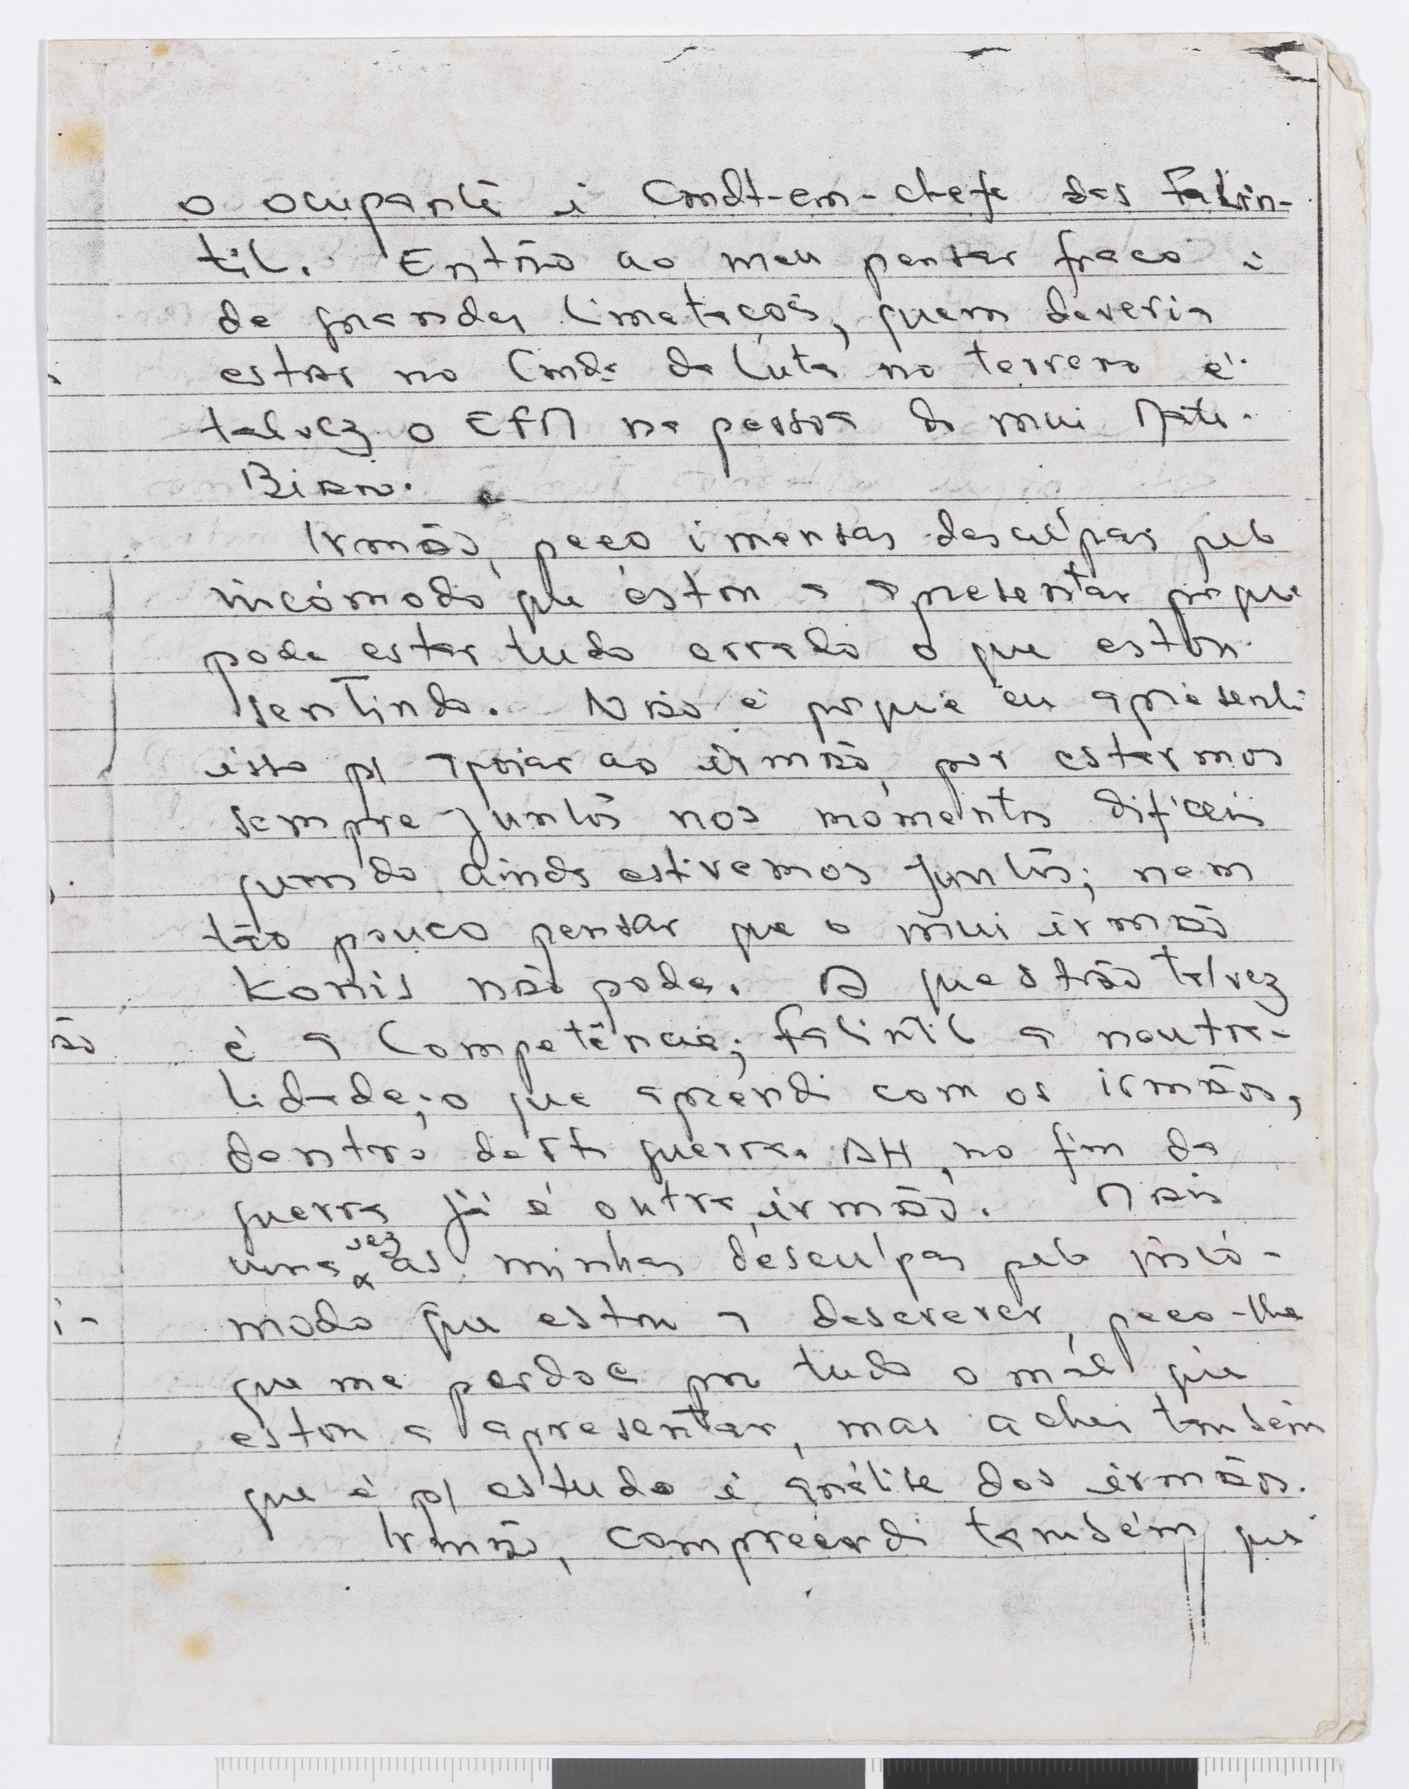 o ocupante e Cmdt-em-chefe das Falin-
til. Então ao meu pensar fraco e
de grandes limetações, quem deveria
estar no Cmdo da Luta no terreno é
talvez o EFM na pessoa do mui Mate
Bian.
Irmão, peço imensas desculpas pelo
incómodo que estou a apresentar porque
pode estar tudo errado o que estou
sentindo. Não é porque eu apresente
isto p/ apoiar ao irmão, por estarmos
sempre juntos nos momentos difíceis
quando ainda estivemos juntos; nem
tão pouco pensar que o mui irmão
Konis não pode. A questão talvez
é a Competência; Falintil a neutra-
lidade; o que aprendi com os irmãos,
dentro desta guerra. AH, no fim da
guerra já é outra, irmão. Mais
uma vez as minhas desculpas pelo incó-
modo que estou a descrever, peço-lhe
que me perdoe por tudo o mál que
estou a apresentar, mas achei também
que é p/ estudo e análise dos irmãos.
Irmão, compreendi também que
ão
i-